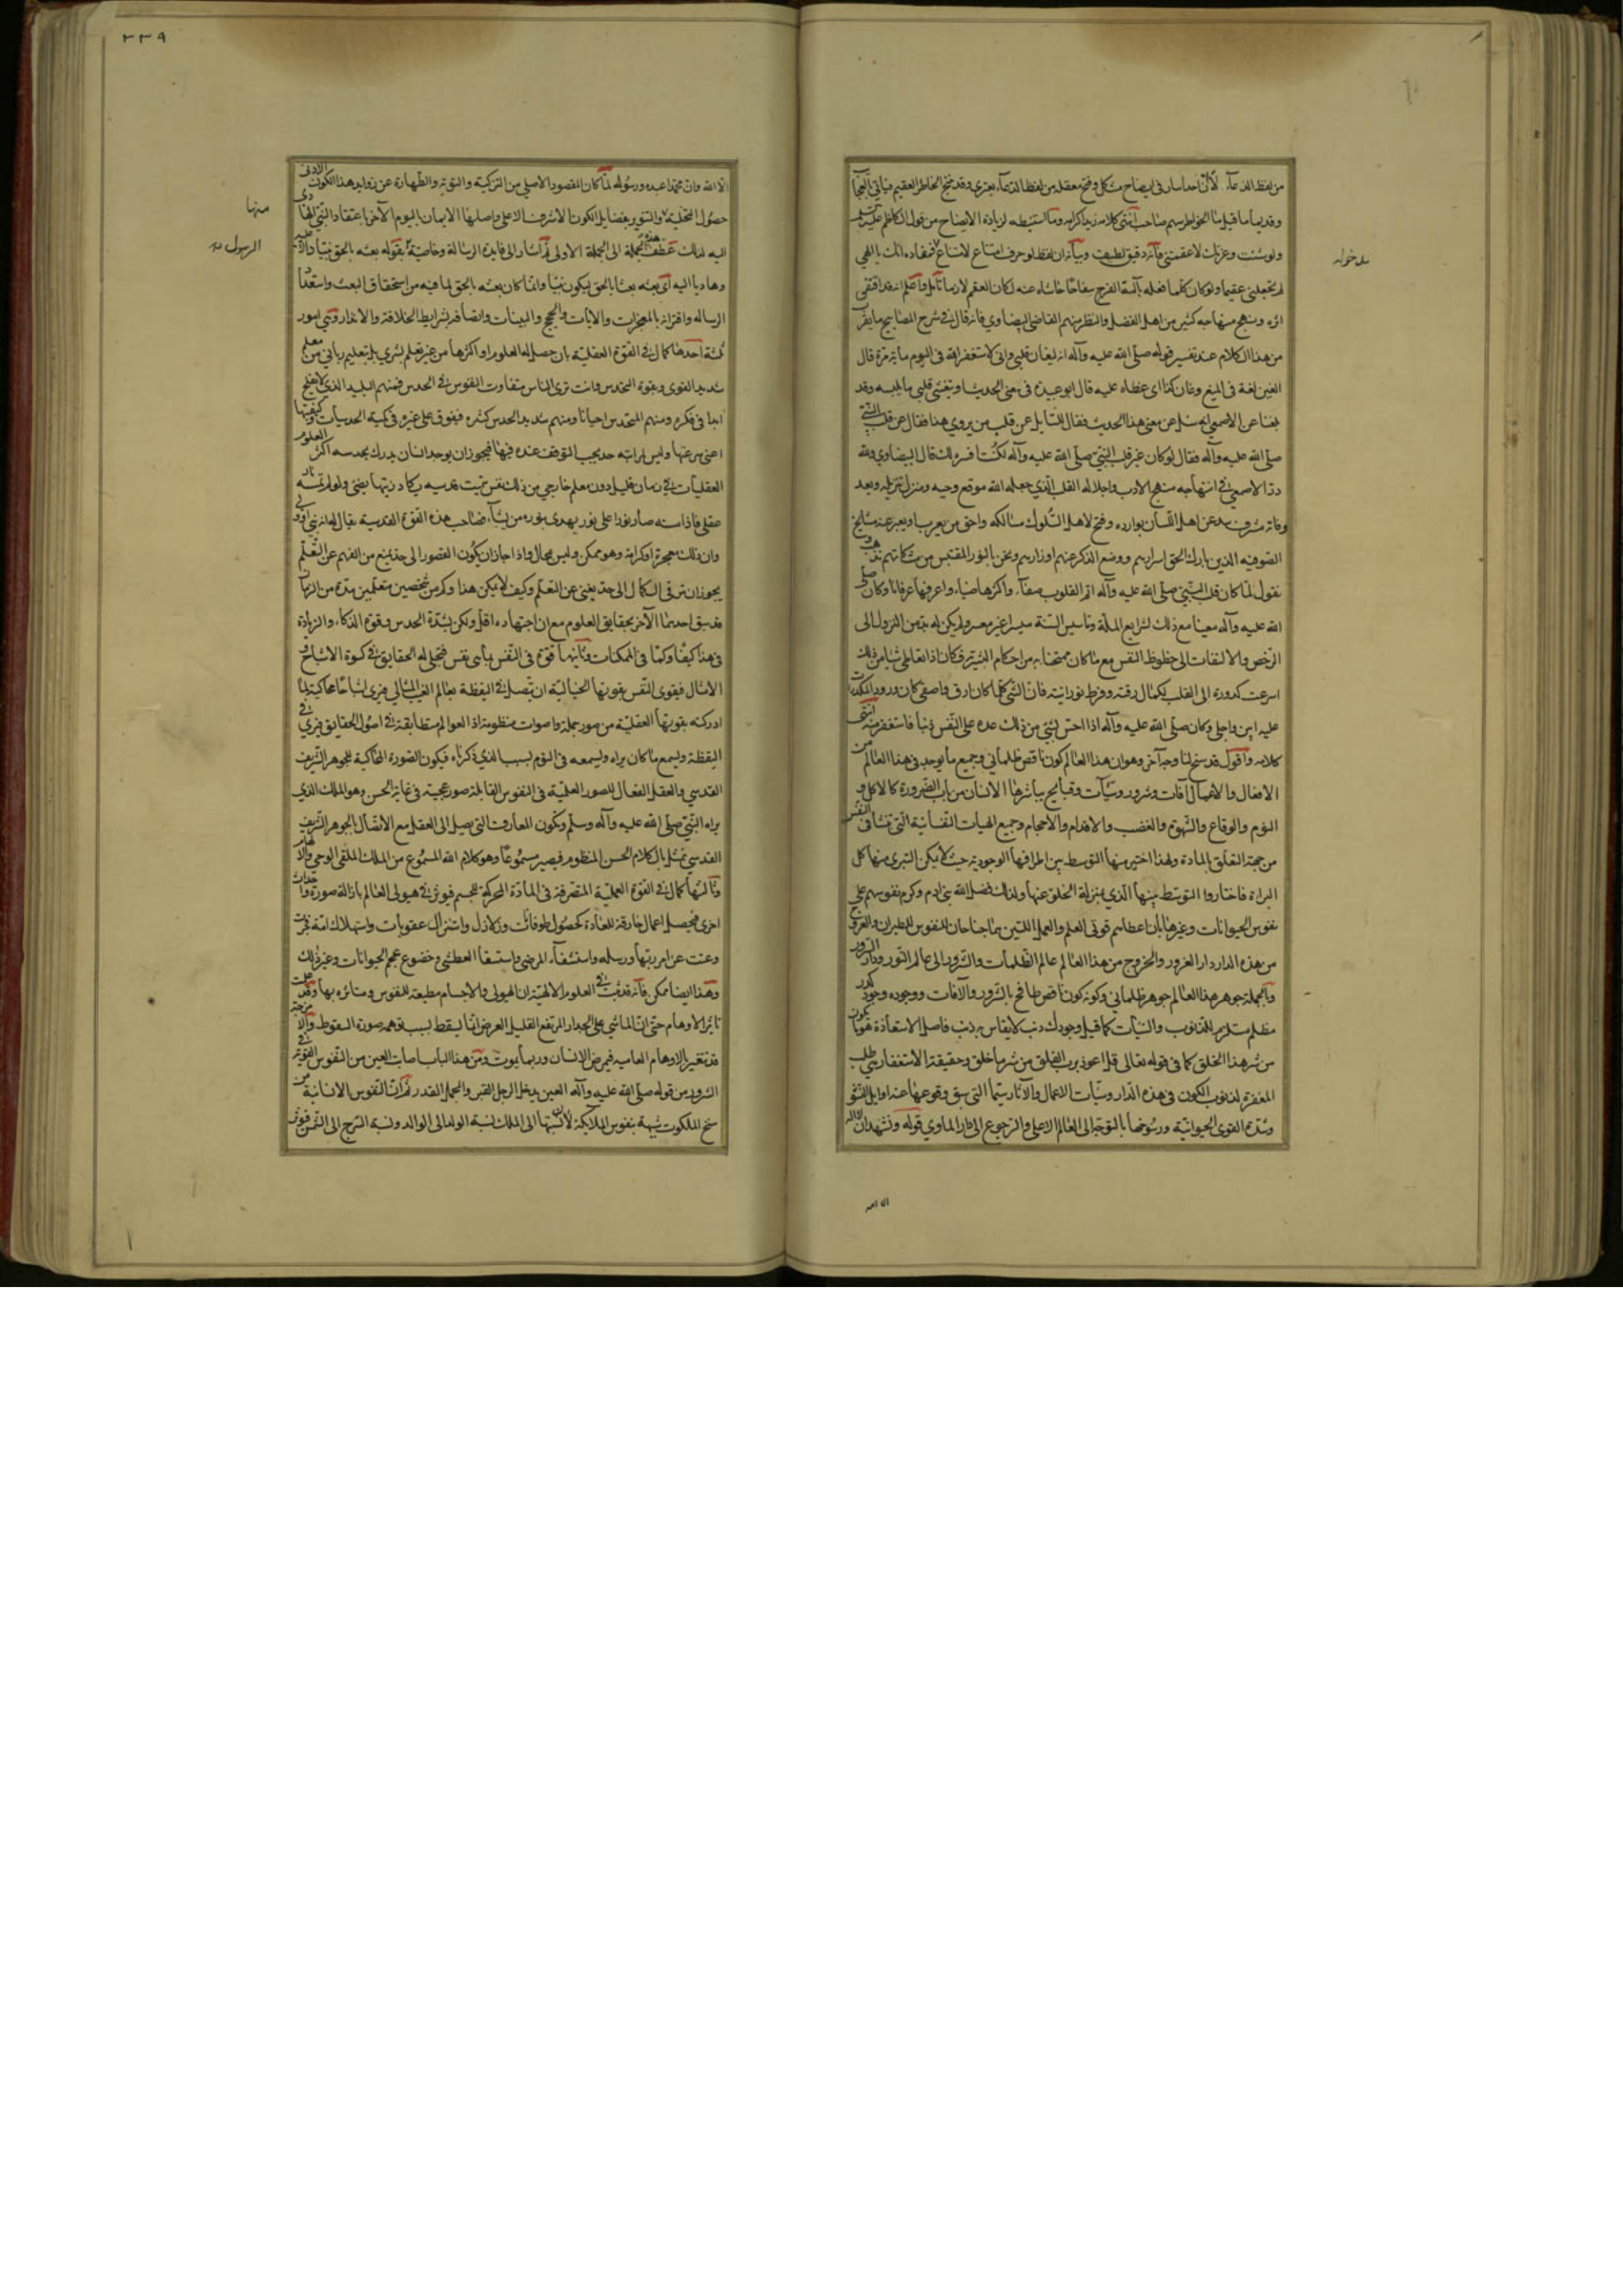 من لفظ الدعاء
وقد
ولو شئت وعزتك لاعقمتني فانه دقيق لطيف وبيانه ان لفظ لو حرف امتناع لامتناع
لم تجعلني عقيما ولو كان كلما فعله بآلة الفرج سفاحا حاشاه عنه لكان العقم لازما
اثره ونهج منهاجه كثير من اهل الفضل والنظر منهم القاضي البيضاوي فانه قال في شرح المصابيح ما يقرب
من هذا الكلام عند تفسير قوله صلى الله عليه وآله انه ليغان قلبي واني لاستغفر الله في اليوم ماية مرة قال
الغين لغة في الغيم وغان كذا اى غطاه عليه قال ابو عبيدة في معنى الحديث اى يتغشى قلبي ما يلبسه وقد
بلغنا عن الاصمعي انه سئل عن معنى هذا الحديث فقال للسايل عن قلب من يروي هذا فقال عن قلب النبي
صلى الله عليه وآله فقال لو كان غير قلب النبي صلى الله عليه وآله لكنت افسره لك قال البيضاوي ولله
در الاصمعي في انتهاجه منهج الادب واجلاله القلب الذي جعله الله موقع وحيه ومنزل تنزيله وبعد
فانه مشرب سد عن اهل اللسان موارده وفتح لاهل السلوك مسالكه واحق من يعرب او يعبر عنه مشايخ
الصوفيه الذين بارك الحق اسرارهم ووضع الذكر عنهم اوزارهم ونحن بالنور المقتبس من مشكاتهم نذهب و
نقول لما كان قلب النبي صلى الله عليه وآله اتم القلوب صفاء واكثرها ضياء واعرفها عرفانا وكان صلى
الله عليه وآله معنيا مع ذلك لشرايع الملة وتاسيس السنة ميسرا غير معسر ولم يكن له بد من النزول الى
الرخص والالتفات الى حظوظ النفس مع ما كان ممتحنا به من احكام البشرية فكان اذا تعاطى شيئا من ذلك
اسرعت كدورة الى القلب لكمال رقته وفرط نورانيته فان الشي كلما كان ارق واصفى كان ورود المكدرات
عليه ابين واجلى وكان صلى الله عليه وآله اذا احس بشي من ذلك عده على النفس ذنبا فاستغفر منه انتهى
كلامه واقول قد سنح لنا وجه آخر وهو ان هذا العالم كون ناقص ظلماني وجميع ما يوجد في هذا العالم من
الافعال والاعمال آفات وشرور وسيئات وقبايح يباشرها الانسان من باب الضرورة كالاكل و
النوم والوقاع والشهوة والغضب والاقدام والاحجام وجميع الهيات النفسانية التي تنشا في النفس
من جهة التعلق بالمادة ولهذا اختير منها التوسط بين اطرافها الوجودية حيث لا يمكن التبرى منها كل
البراءة فاختاروا التوسط بينها الذي بمنزلة الخلو عنها ولذلك فضل الله بني آدم وكرم نفوسهم على
نفوس الحيوانات وغيرها بان اعطاهم قوتى العلم والعمل اللتين هما جناحان للنفوس للطيران والعروج
من هذه الدار دار الغرور والخروج من هذا العالم عالم الظلمات والشرور الى عالم النور ودار السرور
وبالجملة جوهر هذا العالم جوهر ظلماني وكونه كون ناقص طافح بالشرور والآفات ووجوده وجود كدر
مظلم مستلزم للذنوب والسيئات كما قيل وجودك ذنب لا يقاس به ذنب فاصل الاستعاذة هو ما يكون
من شر هذا الخلق كما في قوله تعالى قل اعوذ برب الفلق من شر ما خلق وحقيقة الاستغفار هي طلب
المغفرة لذنوب الكون في هذه الدار وسيئات الاعمال والآثار سيما التي سبق وقوعها عند اوايل النشو
وشدة القوى الحيوانية ورسوخها بالتوجه الى العالم الاصلي والرجوع الى دار الماوى قوله ونشهد ان لا اله
مدخوله
الا الله
٣٣٩
الا الله وان محمدا عبده ورسوله لما كان المقصود الاصلي من التزكية والتوبة والطهارة عن زوايد هذا الكون الادنى
حصول التحلية والتنوير بفضايل الكون الاشرف الاعلى واصلها الايمان باليوم الآخر
اليه لذلك عطف هذه الجملة الى الجملة الاولى ثم اشار الى فايدة الرسالة وخاصيته بقوله بعثه بالحق نبيا دالا عليه
وهاديا اليه اى بعثه بعثا بالحق ليكون نبيا وانما كان بعثه بالحق لما فيه من استحقاق البعث واستعداد
الرساله واقترانه بالمعجزات والآيات والحجج والبينات واتصافه بشرايط الخلافة والانذار وهي امور
ثلثة احدها كمال في القوة العقلية بان حصل له العلوم او اكثرها من غير تعلم بشري بل بتعليم رباني من معلم
شديد القوى وبقوة التحدس وانت ترى الناس متفاوت النفوس في الحدس فمنهم البليد الذي لا يفلح
ابدا في فكره ومنهم المتحدس احيانا ومنهم شديد الحدس كثيره فيفوق على غيره في كمية الحدسيات وكيفيتها
اعنى سرعتها وليس لمراتبه حد يجب التوقف عنده فيها فيجوز ان يوجد انسان يدرك بحدسه اكثر العلوم
العقليات في زمان قليل دون معلم خارجي من ذلك نفس سميت قدسيه يكاد زيتها يضئ ولو لم تمسسه نار
عقلى فاذا مسته صار نورا على نور يهدى بنوره من يشاء صاحب هذه القوة القدسية يقال له انه نبي او ولي
وان ذلك معجزة او كرامة وهو ممكن وليس بمحال واذا جاز ان يكون القصور الى حد يمنع من الفهم عن التعلم
يجوز ان يترقى الكمال الى حد يغنى عن التعلم وكيف لا يمكن هذا وكم من شخصين متعلمين مدة من الزمان
قد سبق احدهما الآخر بحقايق العلوم مع ان اجتهاده اقل ولكن لشدة الحدس وقوة الذكاء والزيادة
في هذا كيفا وكما في الممكنات وثانيها قوة في النفس باى نفس فتجلى له الحقايق في كسوة الاشباح و
الامثال فيقوى النفس بقوتها الخيالية ان يتصل في اليقظة بعالم الغيب المثالي فيرى اشباحا محاكية لما
ادركته بقوتها العقلية من صور جميلة واصوات منظومة اذ العوالم متطابقة في اصول الحقايق فيرى في
اليقظة ويسمع ما كان يراه ويسمعه في النوم لسبب الذي ذكرناه فيكون الصورة المحاكية للجوهر الشريف
القدسي والعقل الفعال للصور العلمية في النفوس القابلة صور عجيبة في غاية الحسن وهو الملك الذي
يراه النبي صلى الله عليه وآله وسلم وتكون المعارف التي يصل الى العقل مع الاتصال بالجوهر الشريف
القدسي تمثل بالكلام الحسن المنظوم فيصير مسموعا وهو كلام الله المسموع من الملك الملقى الوحي والالهام
وثالثها كمال في القوة العملية المتصرفة في المادة المحركة للجسم فيوثر في هيولى العالم بازالة صورة واحداث
اخرى فيحصل اعمال خارقة للعادة كحصول طوفانات وزلازل واستنزال عقوبات واستهلاك امة فجرت
وعتت عن امر ربها ورسله واستشفاء المرضى واستسقاء العطشى وخضوع عجم الحيوانات وغير ذلك
وهذا ايضا ممكن فانه قد ثبت في العلوم الالهية ان الهيولى والاجسام مطيعة للنفوس ومتاثره بها وقد علمت
تاثير الاوهام حتى ان الماشي على الجدار المرتفع القليل العرض انما يسقط بسبب توهمه صورة السقوط والا
قد تتغير بالاوهام العاميه فيمرض الانسان وربما يموت ومن هذا الباب اصابة العين من النفوس القوية في
الشرور من قوله صلى الله عليه وآله العين يدخل الرجل القبر والجمل القدر ثم ان النفوس الانسانية من
سنخ الملكوت شبيهة بنفوس الملائكة لان نسبتها الى الملك نسبة الولد الى الوالد ونسبة السرج الى الشمس فيوثر
منها
الرسول